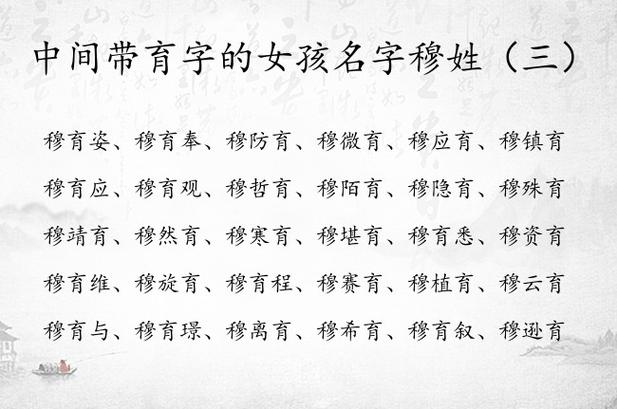 中间带育字的女孩名字穆姓（三）
穆育姿、穆育奉、穆防育、穆微育、穆应育、穆镇育
穆育应、穆育观、穆哲育、穆陌育、穆隐育、穆殊育
穆靖育、穆然育、穆寒育、穆堪育、穆育悉、穆资育
穆育维、穆旋育、穆育程、穆赛育、穆植育、穆云育
穆育与、穆育璟、穆离育、穆希育、穆育叙、穆逊育